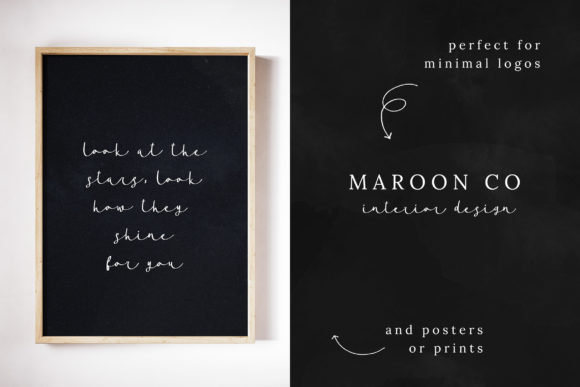 look at the
stars, look
how they
shine
for you
perfect for
minimal logos
MAROON CO
interior design
and posters
or prints